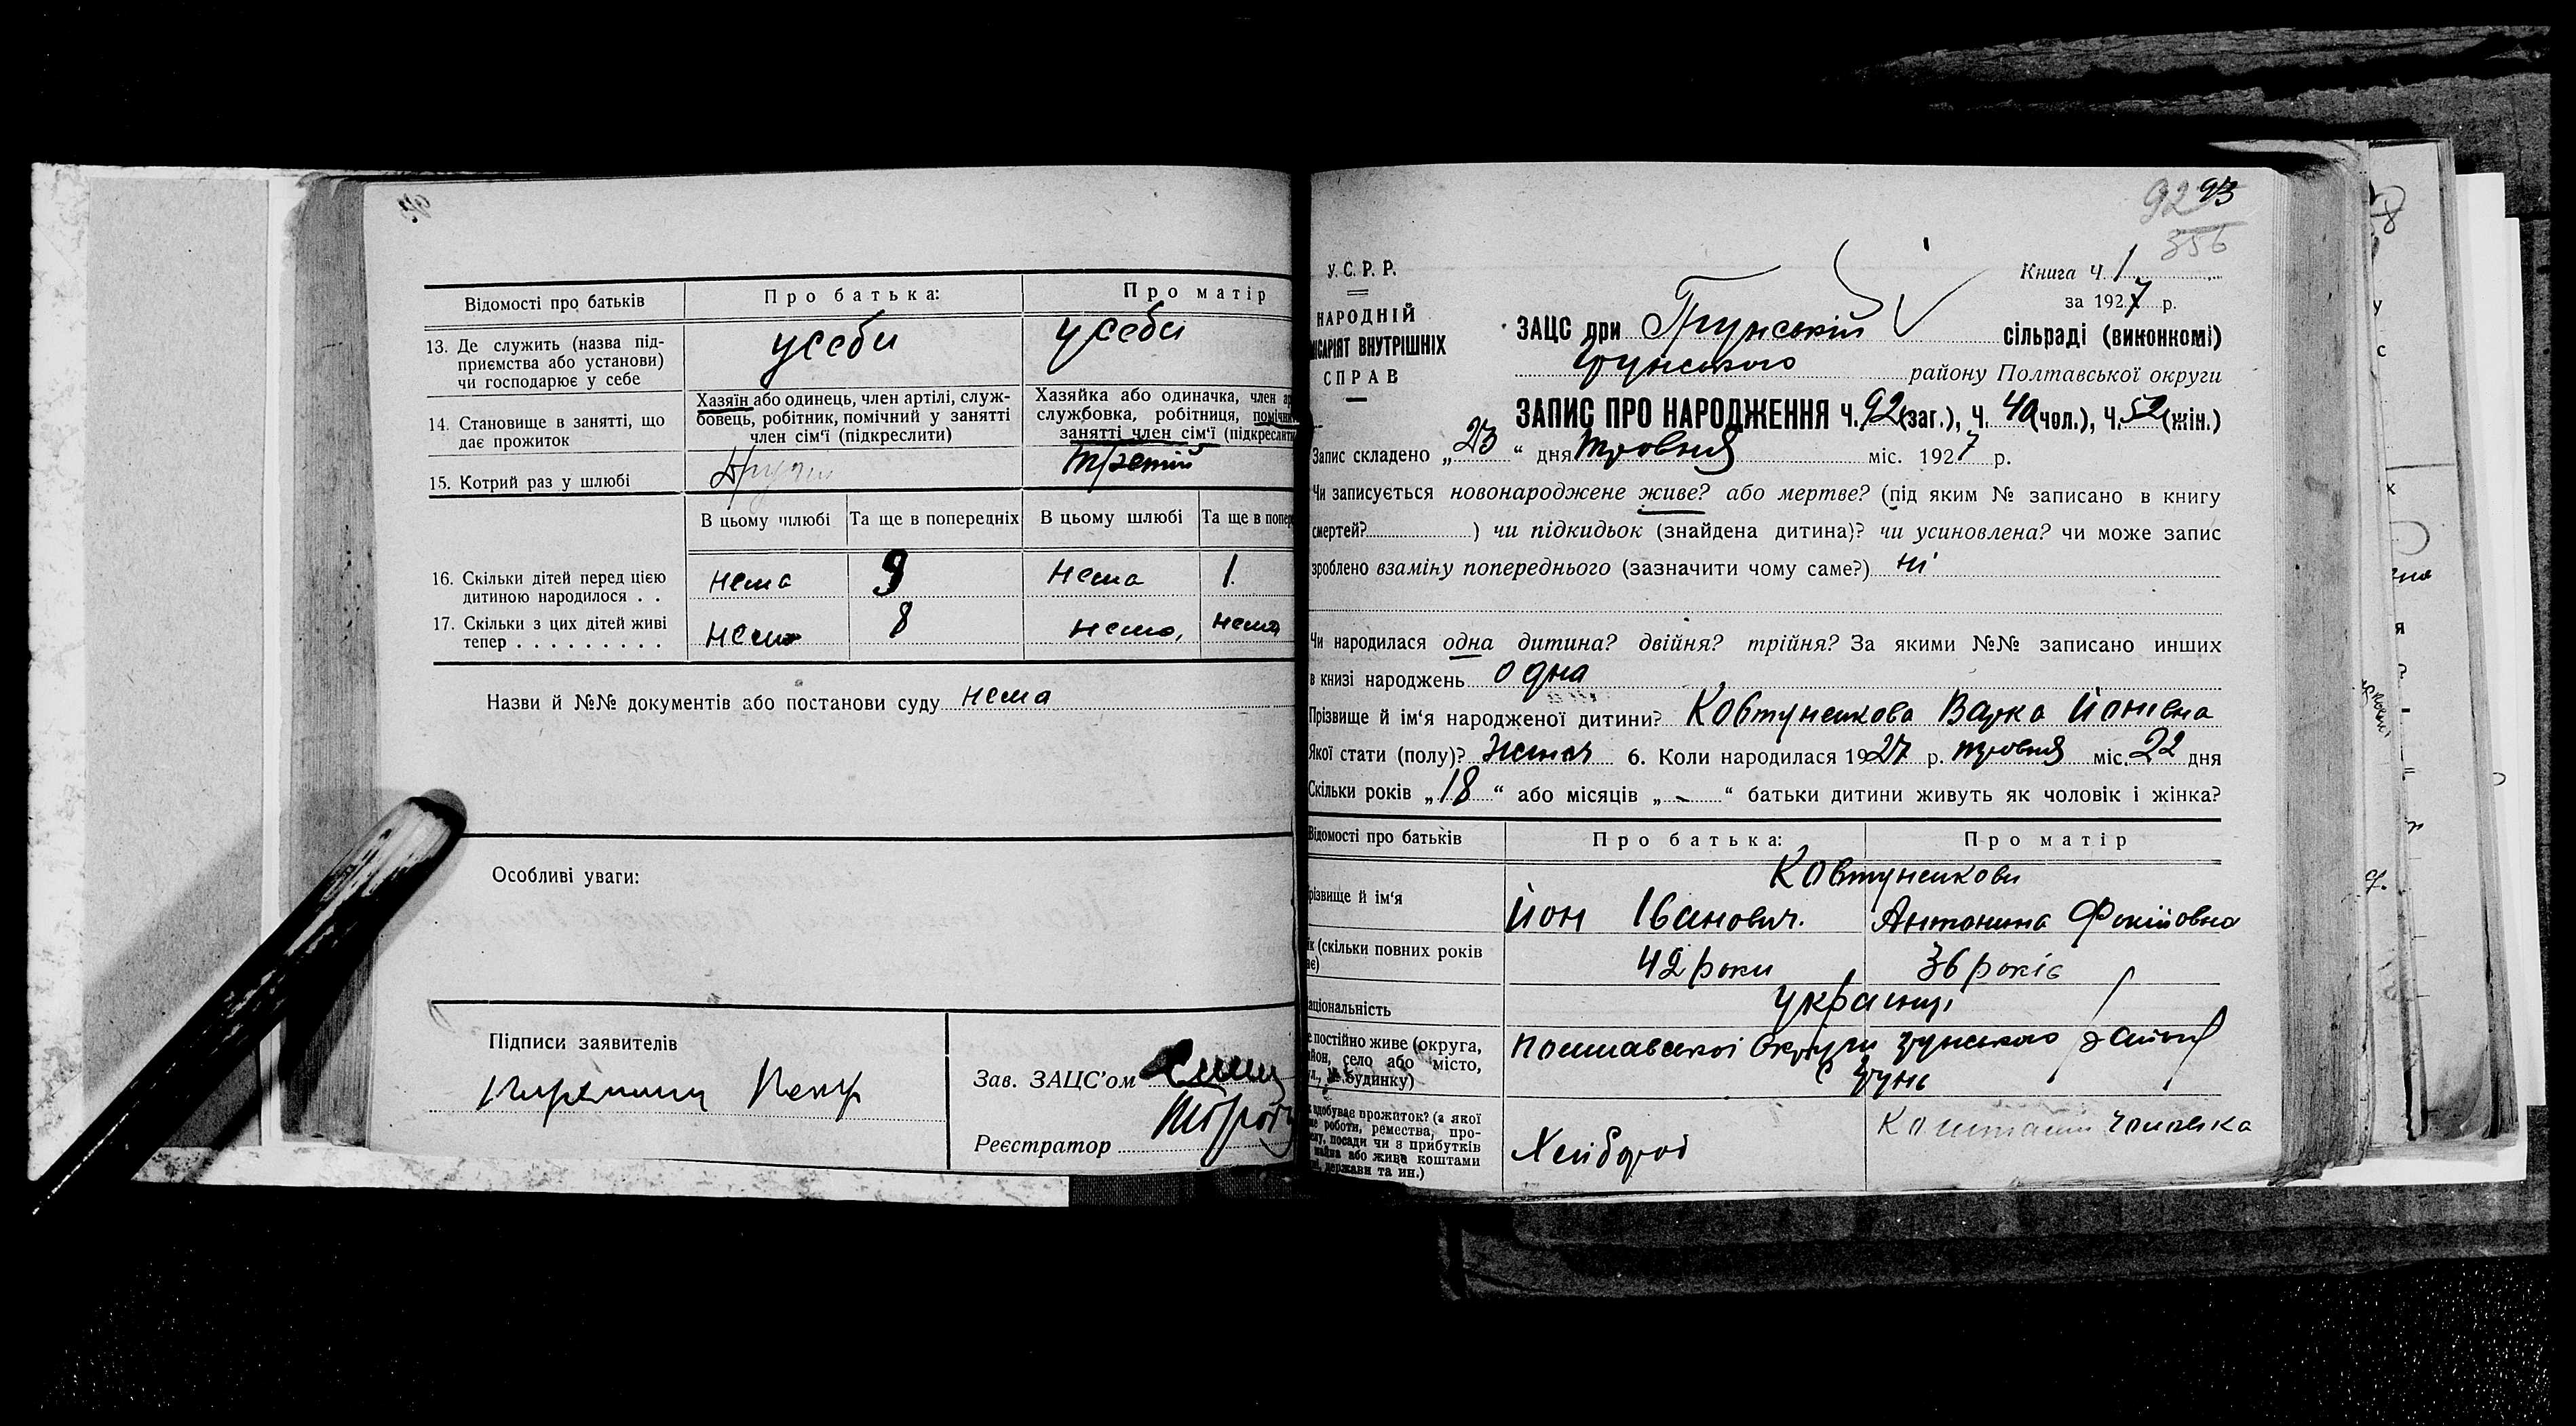 Відомості про батьків
Про батька:
Про матір
13. Де служить (назва під-
приємства або установи)
чи господарює у себе
у себи
у себи
14. Становище в занятті, що
дає прожиток
Хазяїн або одинець, член артілі, служ-
бовець, робітник, помічний у занятті
член сім'ї (підкреслити)
Хазяйка або одиначка, член
службовка, робітниця,
занятті член сім'ї (підкреслити
15. Котрий раз у шлюбі
Другий
третій
В цьому шлюбі
Та ще в попередніх
В цьому шлюбі
Та ще в
16. Скільки дітей перед цією
дитиною народилося . .
нема
9
нема
1.
17. Скільки з цих дітей живі
тепер . . . . . . . . .
нема
8
нема,
нема
Назви й №№ документів або постанови суду нема
Особливі уваги:
Підписи заявителів
Зав. ЗАЦС'ом
Реєстратор
92 93
356
У. С. Р. Р.
НАРОДНІЙ
ВНУТРІШНІХ
СПРАВ
Книга Ч. 1
за 1927 р.
ЗАЦС при Грунській сільраді (виконкомі)
Грунського району Полтавської округи
ЗАПИС ПРО НАРОДЖЕННЯ Ч. 92 (заг.), Ч. 40 (чол.), Ч. 52 (жін.)
Запис складено „23“ дня травня міс. 1927 р.
Чи записується новонароджене живе? або мертве? (під яким № записано в книгу
смертей? ) чи підкидьок (знайдена дитина)? чи усиновлена? чи може запис
зроблено взаміну попереднього (зазначити чому саме?) ні
Чи народилася одна дитина? двійня? трійня? За якими №№ записано инших
в книзі народжень одна
Прізвище й ім'я народженої дитини? Ковтуненкова Варка Йонівна
Якої стати (полу)? жіноч 6. Коли народилася 1927 р. травня міс. 22 дня
Скільки років „18“ або місяців „-“ батьки дитини живуть як чоловік і жінка?
Відомості про батьків
Про батька:
Про матір
Прізвище й ім'я
Ковтуненкови
Йон Іванович.
Антонина Фокійовна
(скільки повних років
42 роки
36 років
національність
українці
постійно живе (округа,
село або місто,
будинку)
Полтавської Округи Грунського району
с Грунь
здобуває прожиток? (з якої
роботи, ремества, про-
посади чи з прибутків
майна або живе коштами
держави та ин.)
Хлібороб
Коштами чоловіка